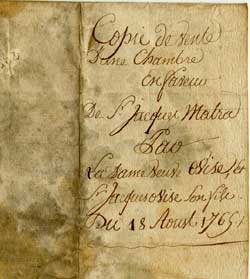 Copie de vente
D'une Chambre
En faveur
De Sr Jacques Matra
Par
La Dame veuve Vise et
Sr Jacques Vise son fils
Du 18 Aoust 1765